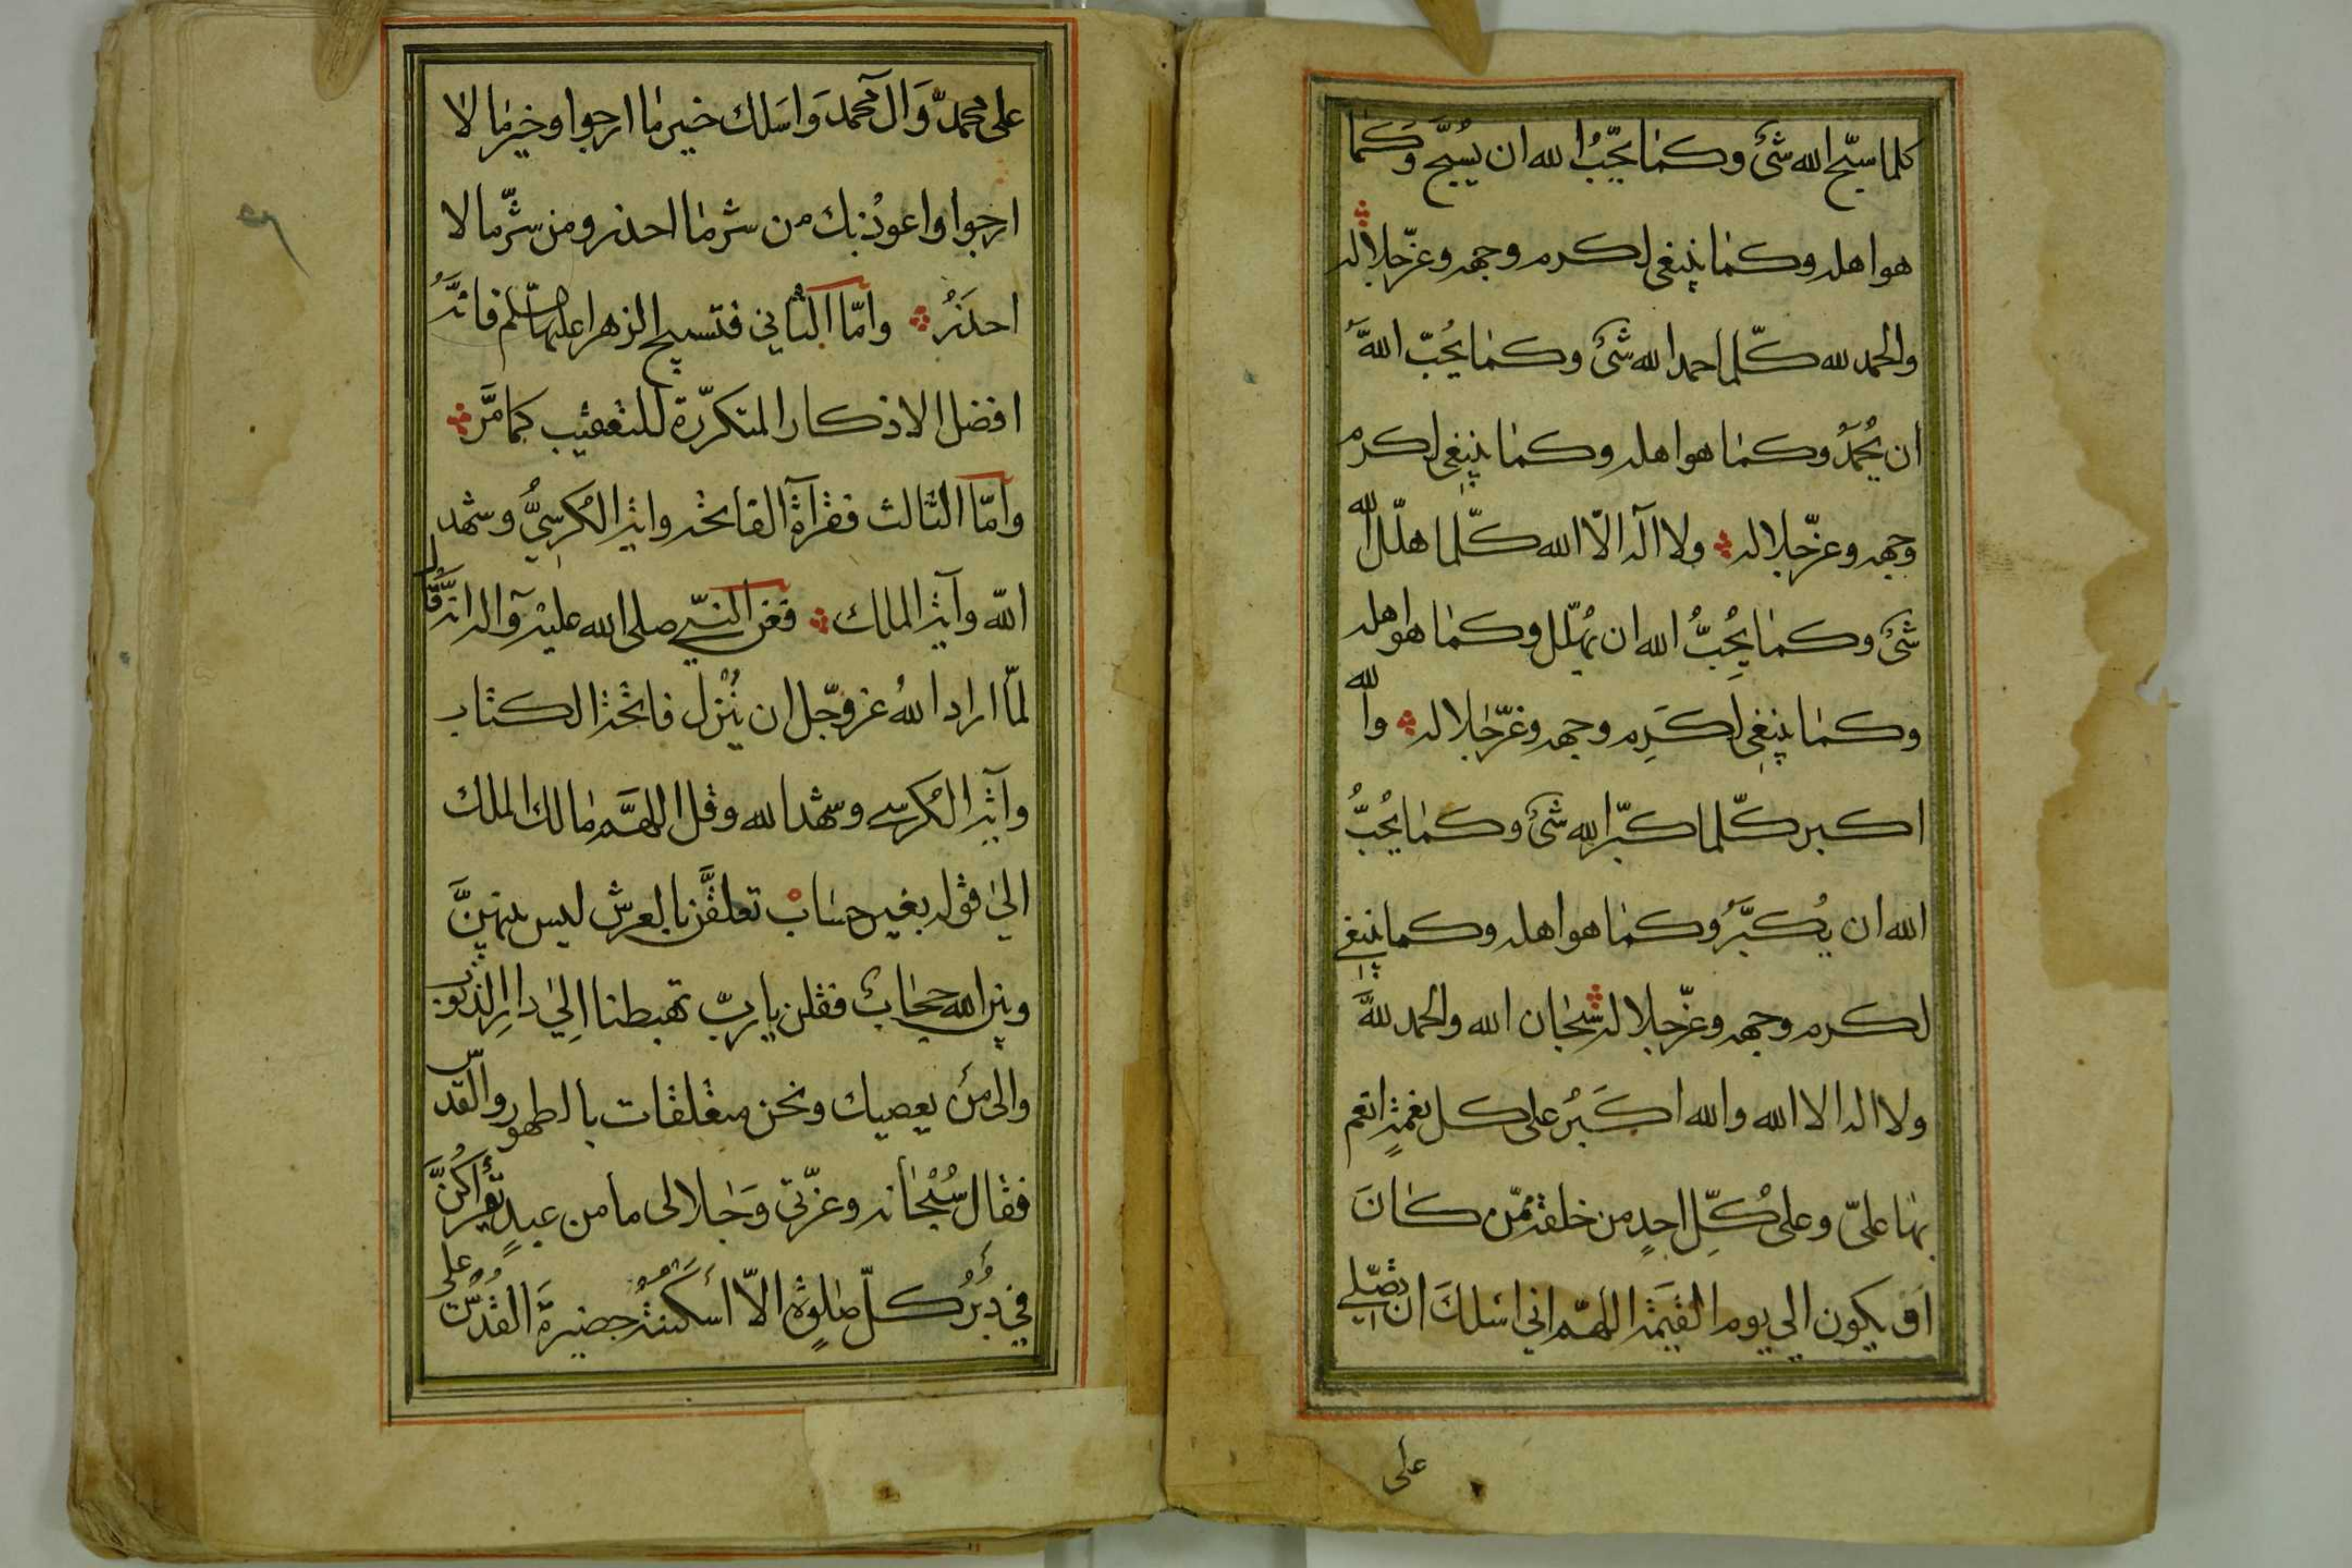 كلما سبّح الله شئ وكما يحبّ الله ان يسبّح وكما
هو اهله وكما ينبغي لكرم وجهه وعزّ جلاله
والحمد لله كلّما حمد الله شئ وكما يحبّ الله
ان يحمد وكما هو اهله وكما ينبغي لكرم
وجهه وعزّ جلاله ولا اله الّا الله كلّما هلّل الله
شئ وكما يحبّ الله ان يهلّل وكما هو اهله
وكما ينبغي لكرم وجهه وعزّ جلاله والله
اكبر كلّما كبّر الله شئ وكما يحبّ
الله ان يكبّر وكما هو اهله وكما ينبغي
لكرم وجهه وعزّ جلاله سبحان الله والحمد لله
ولا اله الا الله والله اكبر على كل نعمة انعم
بها علىّ وعلى كلّ احد من خلقه ممّن كان
او يكون الي يوم القيمة اللهمّ اني اسلك ان تصلّي
على
على محمّد وال محمد واسلك خير ما ارجوا وخير ما لا
ارجوا واعوذ بك من شر ما احذر ومن شرّ ما لا
احذر وامّا الثاني فتسبيح الزهرا عليها سلم فانه
افضل الاذكار المتكرّرة للتعقيب كما مرّ
وامّا الثالث فقرآة الفاتحة واية الكرسيّ وشهد
الله وآية الملك فعن النبيّ صلى الله عليه وآله انه قال
لمّا اراد الله عز وجّل ان ينزل فاتحة الكتاب
وآية الكرسي وشهد الله وقل اللهمّ مالك الملك
الي قوله بغير حساب تعلقن بالعرش ليس بينهنّ
وبين الله حجاب فقلن يا ربّ تهبطنا الي دار الذنوب
والى من يعصيك ونحن متعلقات بالطهور والقدس
فقال سبحانه وعزّتي وجلالى ما من عبد قرأكنّ
في دبر كلّ صلوة الّا اسكنته حضيرة القدس على